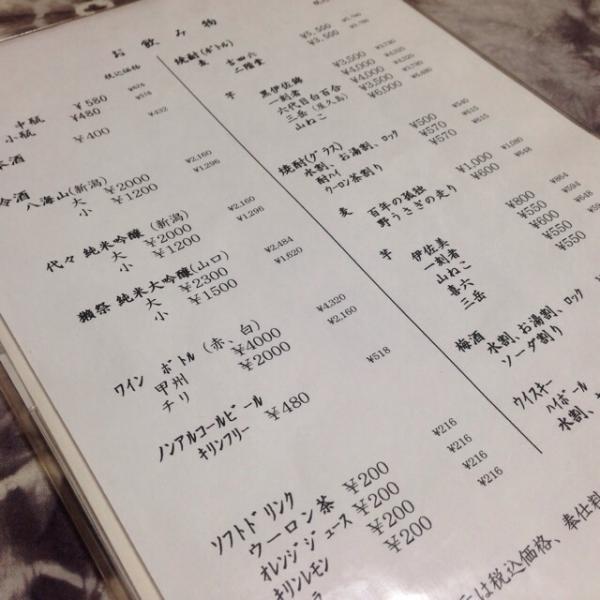 お飲み物
税込価格
中瓶 ¥580 ¥626
小瓶 ¥480 ¥518
本酒 ¥400 ¥432
冷酒 八海山(新潟)
大 ¥2000 ¥2,160
小 ¥1200 ¥1,296
代々 純米吟醸(新潟)
大 ¥2000 ¥2,160
小 ¥1200 ¥1,296
獺祭 純米大吟醸(山口)
大 ¥2300 ¥2,484
小 ¥1500 ¥1,620
ワイン ボトル(赤、白)
甲州 ¥4000 ¥4,320
チリ ¥2000 ¥2,160
ノンアルコールビール
キリンフリー ¥480 ¥518
ソフトドリンク
ウーロン茶 ¥200 ¥216
オレンジジュース ¥200 ¥216
キリンレモン ¥200 ¥216
焼酎(ボトル)
麦 吉四六 ¥5,500
二階堂 ¥3,500 ¥3,780
芋 黒伊佐錦 ¥3,500 ¥3,780
一刻者 ¥4,000
六代目百合 ¥4,000
三岳(屋久島) ¥3,500
山ねこ ¥6,000
焼酎(グラス)
水割、お湯割、ロック ¥500 ¥540
酎ハイ ¥570 ¥615
ウーロン茶割り ¥570 ¥615
麦 百年の孤独 ¥1,000 ¥1,080
野うさぎの走り ¥600 ¥648
芋 伊佐美 ¥800 ¥864
一刻者 ¥550 ¥594
山ねこ ¥600 ¥648
喜六 ¥550
三岳 ¥550
梅酒
水割、お湯割、ロック
ソーダ割り
ウイスキー
ハイボール
水割、
は税込価格、奉仕料